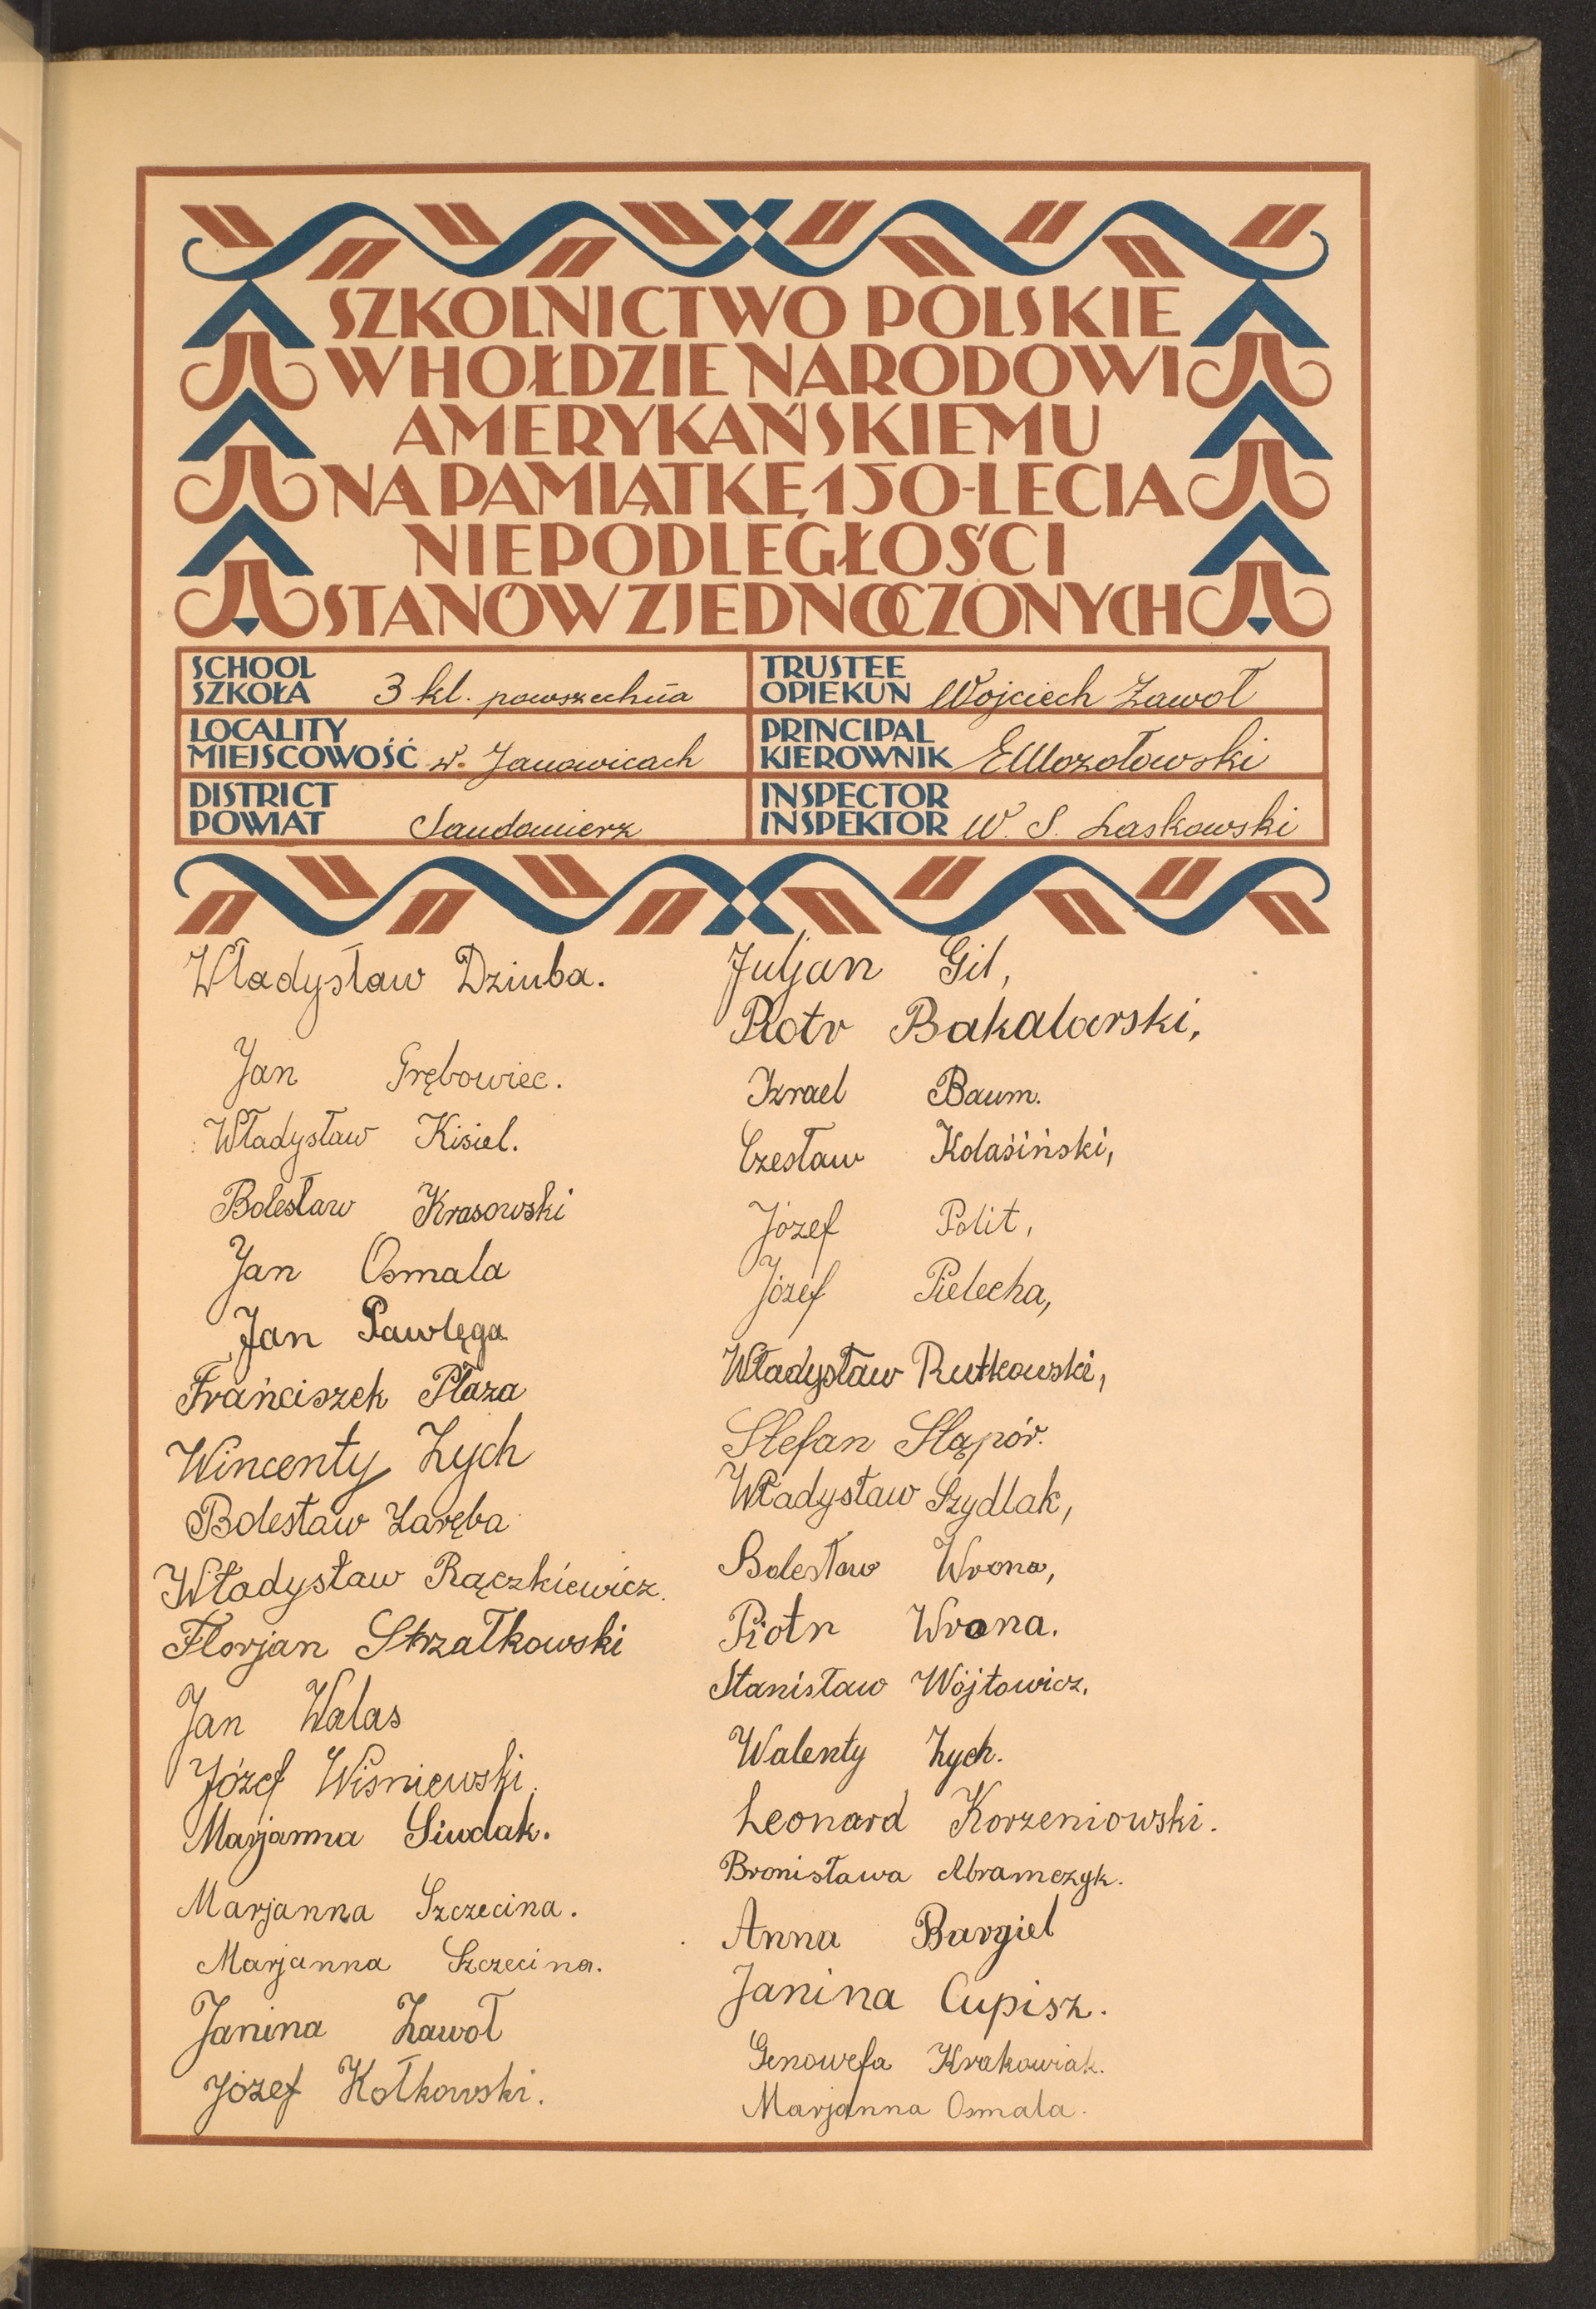 SZKOLNICTWO POLSKIE
W HOŁDZIE NARODOWI
AMERYKAŃSKIEMU
NA PAMIĄTKĘ 150-LECIA
NIEPODLEGŁOŚCI
STANÓW ZJEDNOCZONYCH
SCHOOL
SZKOŁA 3 kl. powszechna
LOCALITY
MIEJSCOWOŚĆ w. Janowicach
DISTRICT
POWIAT Sandomierz
TRUSTEE
OPIEKUN Wojciech Zawoł
PRINCIPAL
KIEROWNIK EMozołowski
INSPECTOR
INSPEKTOR W. S. Laskowski
Władysław Dziuba.
Jan Grębowiec.
Władysław Kisiel.
Bolesław Krasowski
Jan Osmala
Jan Pawlęga
Franciszek Płaza
Wincenty Zych
Bolesław Zaręba
Władysław Rączkiewicz.
Florjan Strzałkowski
Jan Walas
Józef Wiśniewski.
Marjanna Siudak.
Marjanna Szczecina.
Marjanna Szczecina.
Janina Zawoł
Józef Kołkowski.
Juljan Gil,
Piotr Bakalarski,
Izrael Baum.
Czesław Kolasiński,
Józef Polit,
Józef Pielecha,
Władysław Rutkowski,
Stefan Słąpór.
Władysław Szydlak,
Bolesław Wrona,
Piotr Wrona.
Stanisław Wójtowicz.
Walenty Zych.
Leonard Korzeniowski.
Bronisława Abramczyk.
Anna Bargiel
Janina Cupisz.
Genowefa Krakowiak.
Marjanna Osmala.